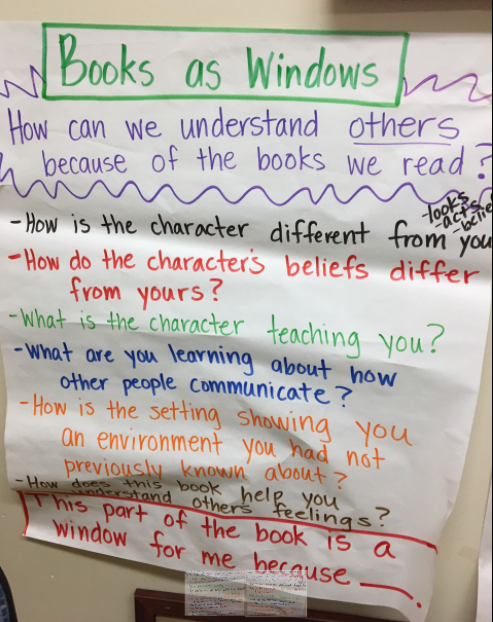 Books as Windows
How can we understand others
because of the books we read?
-looks
-acts
-How is the character different from you
-How do the character's beliefs differ
from yours?
-What is the character teaching you?
-What are you learning about how
other people communicate?
-How is the setting showing you
an environment you had not
previously known about?
-How does this book help you
understand others feelings?
This part of the book is a
window for me because ____.